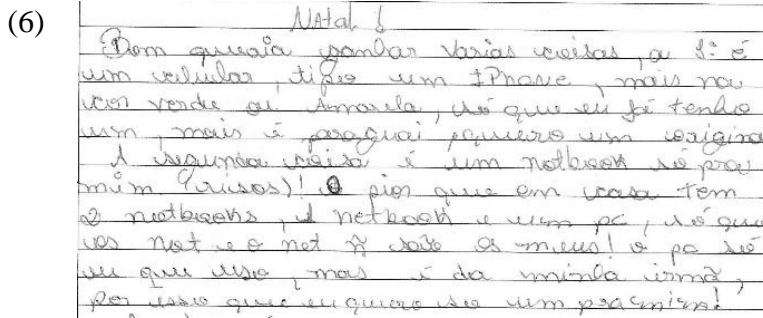 (6)
Natal!
Bom queria ganhar varias coisas, a 1ª é
um celular, tipo um IPhone, mais na
cor verde ou Amarela, só que eu já tenho
um, mais é paraguai quero um origina
A segunda coisa é um notbook só pra
mim (risos)! O pior que em casa tem
2 notbooks, 1 netbook e um pc, só que
os not e o net ñ são os meus! o pc só
eu que uso, mas é da minha irmã,
por isso que eu quero só um pra mim!